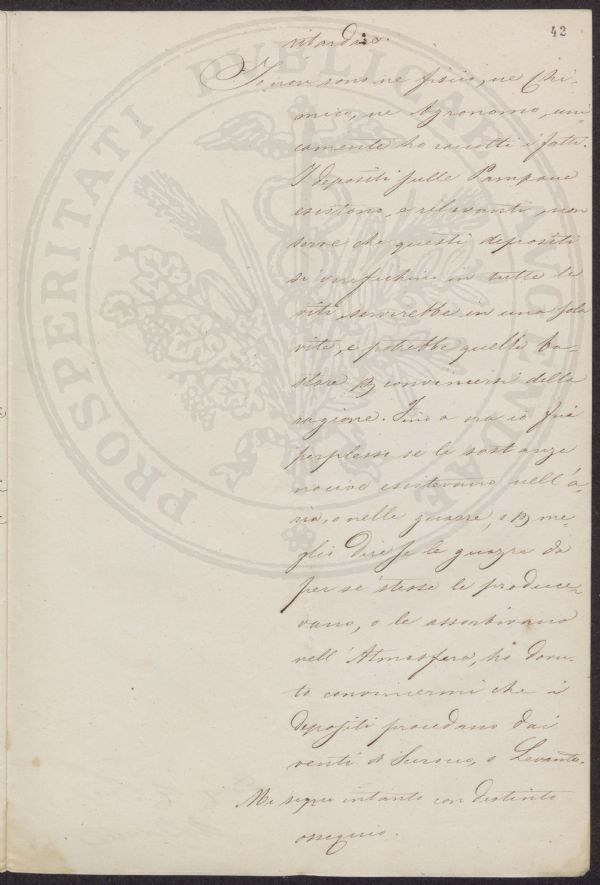 42
ritardare.
Io non sono ne fisico, ne Chi-
mico, ne Agronomo, uni-
camente ho raccolti i fatti.
I depositi sulle Pampane
esistono, e rilevanti, non
serve che questi depositi
si in tutte le
viti, servirebbe in una sola
vite, e potrebbe quella ba-
stare p convincersi della
ragione. Fino a ora io fui
perplesso se le sostanze
nocive esistevano nell'a-
ria, o nelle guazze, o p me-
glio dire se le guazze da
per se' stesse le produce-
vano, o le assorbivano
nell'Atmosfera, ho dovu-
to convincermi che i
depositi procedano dai
venti di Sirocco, o Levante.
Mi segno intanto con distinto
ossequio.
PROSPERITATI PUBLICAE AVGENDAE